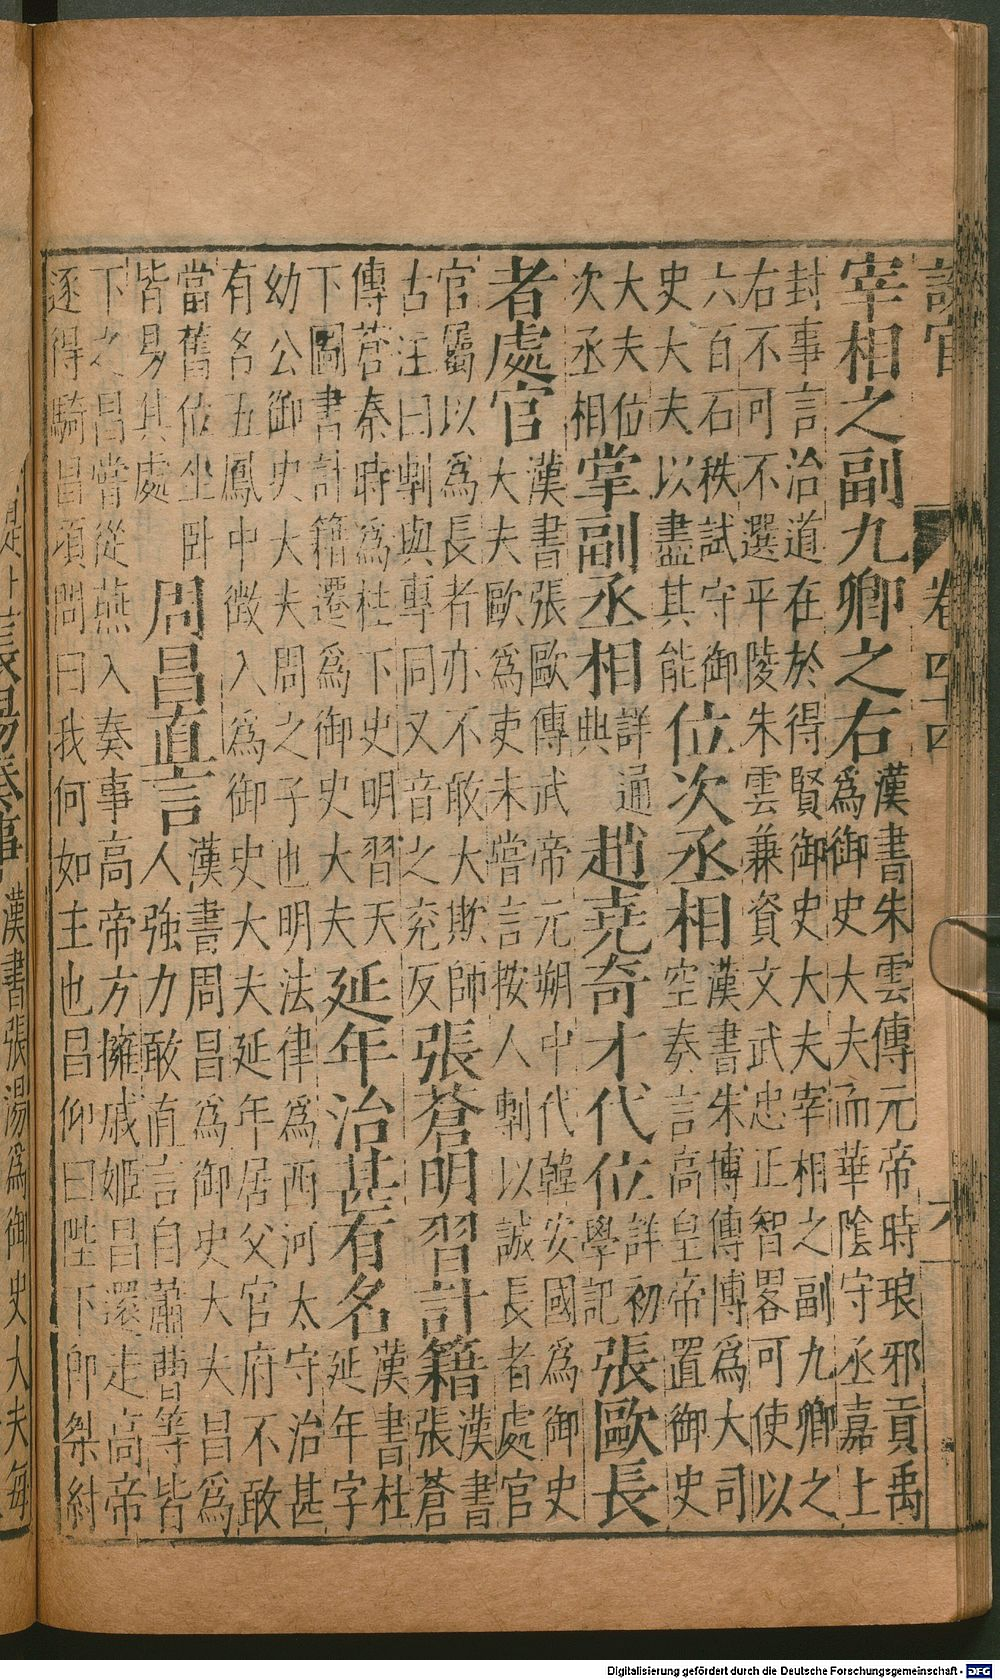 設官 卷四十四 六
宰相之副九卿之右
漢書朱雲傳元帝時琅邪貢禹
為御史大夫而華陰守丞嘉上
封事言治道在於得賢御史大夫宰相之副九卿之
右不可不選平陵朱雲兼資文武忠正智畧可使以
六百石秩試守御
史大夫以盡其能
位次丞相
漢書朱博傳博為大司
空奏言高皇帝置御史
大夫位
次丞相
掌副丞相
詳通
典
趙堯奇才代位
詳初
學記
張歐長
者處官
漢書張歐傳武帝元朔中代韓安國為御史
大夫歐為吏未嘗言按人剸以誠長者處官
官屬以為長者亦不敢大欺師
古注曰剸與專同又音之兖反
張蒼明習計籍
漢書
張蒼
傳蒼秦時為柱下史明習天
下圖書計籍遷為御史大夫
延年治甚有名
漢書杜
延年字
幼公御史大夫問之子也明法律為西河太守治甚
有名五鳳中徵入為御史大夫延年居父官府不敢
當舊位坐卧
皆易其處
周昌直言
漢書周昌為御史大夫昌為
人強力敢直言自蕭曹等皆
下之昌嘗從燕入奏事高帝方擁戚姬昌還走高帝
逐得騎昌項問曰我何如主也昌仰曰陛下即桀紂
張湯奏事
漢書張湯為御史大夫每
Digitalisierung gefördert durch die Deutsche Forschungsgemeinschaft - DFG